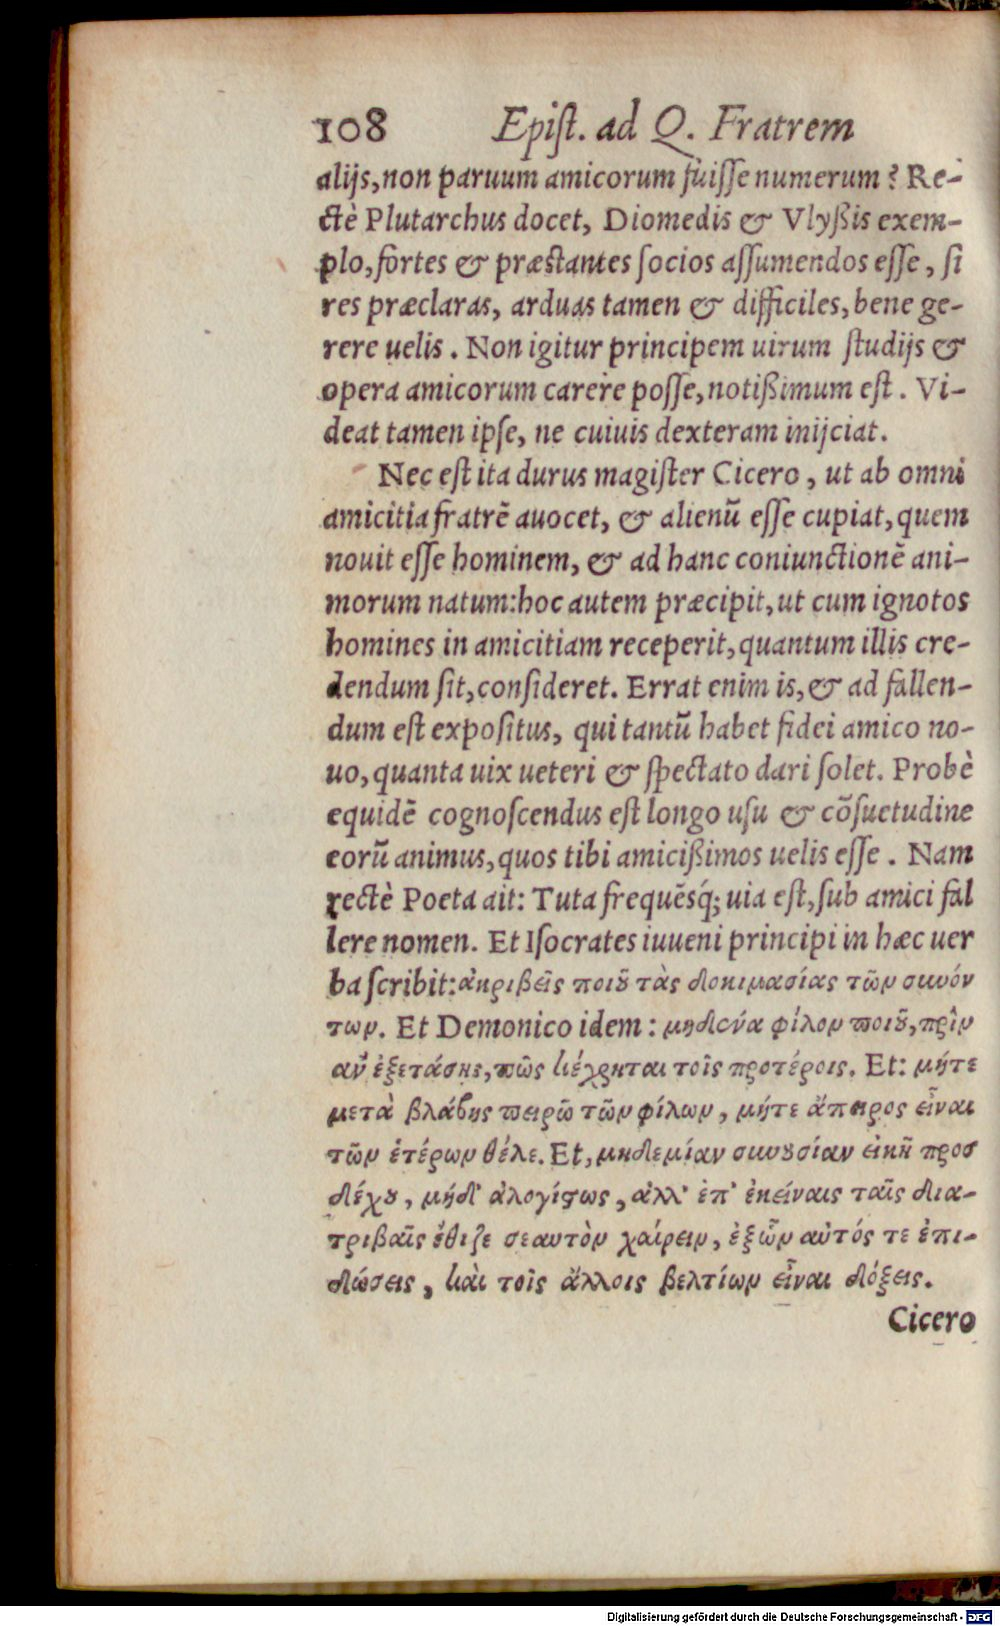 108 Epist. ad Q. Fratrem
alijs, non paruum amicorum fuisse numerum? Re-
ctè Plutarchus docet, Diomedis & Vlyßis exem-
plo, fortes & præstantes socios assumendos esse, si
res præclaras, arduas tamen & difficiles, bene ge-
rere uelis. Non igitur principem uirum studijs &
opera amicorum carere posse, notißimum est. Vi-
deat tamen ipse, ne cuiuis dexteram inijciat.
Nec est ita durus magister Cicero, ut ab omni
amicitia fratrē auocet, & alienū esse cupiat, quem
nouit esse hominem, & ad hanc coniunctionē ani-
morum natum: hoc autem præcipit, ut cum ignotos
homines in amicitiam receperit, quantum illis cre-
dendum sit, consideret. Errat enim is, & ad fallen-
dum est expositus, qui tantū habet fidei amico no-
uo, quanta uix ueteri & spectato dari solet. Probè
equidē cognoscendus est longo usu & cōsuetudine
eorū animus, quos tibi amicißimos uelis esse. Nam
rectè Poeta ait: Tuta frequēsq́; uia est, sub amici fal
lere nomen. Et Isocrates iuueni principi in hæc uer
ba scribit: ἀκριβεῖς ποιοῦ τὰς δοκιμασίας τῶν συνόν
των. Et Demonico idem: μηδένα φίλον ποιοῦ, πρὶν
ἂν ἐξετάσῃς, πῶς κέχρηται τοῖς προτέροις. Et: μήτε
μετὰ βλάβης πειρῶ τῶν φίλων, μήτε ἄπειρος εἶναι
τῶν ἑτέρων θέλε. Et, μηδεμίαν συνουσίαν εἰκῆ προσ
δέχου, μήδ' ἀλογίστως, ἀλλ' ἐπ' ἐκείναις ταῖς δια-
τριβαῖς ἔθιζε σεαυτὸν χαίρειν, ἐξ ὧν αὐτός τε ἐπι-
δώσεις, καὶ τοῖς ἄλλοις βελτίων εἶναι δόξεις.
Cicero
Digitalisierung gefördert durch die Deutsche Forschungsgemeinschaft - DFG